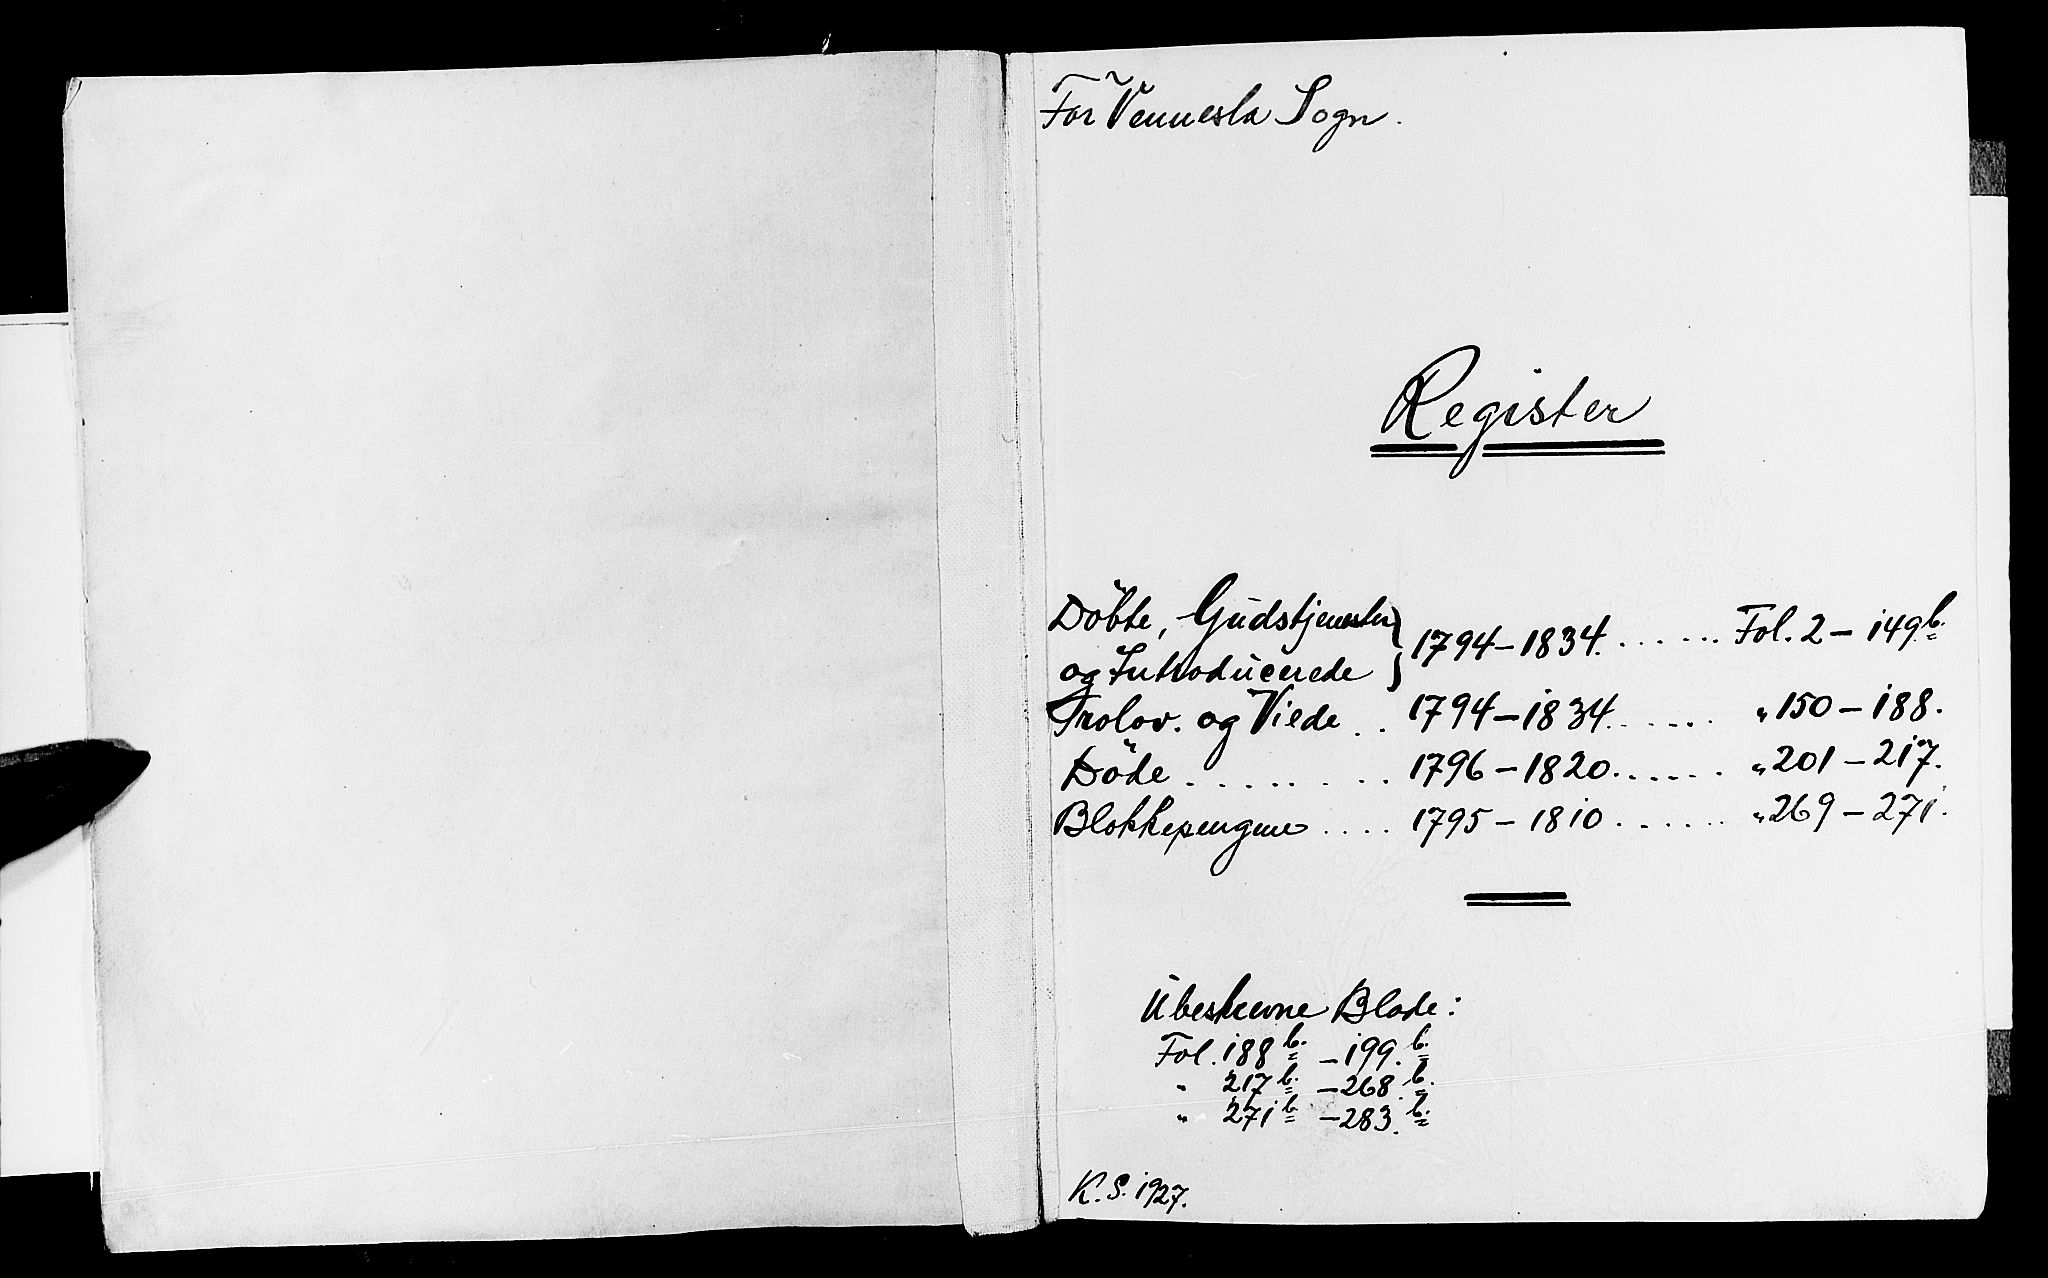 For Vennesla Sogn.
Register
Döbte, Gudstjenester
og Introducerede } 1794–1834. . . . . . . Fol. 2 – 149 b.
Trolov. og Viede . . 1794–1834. . . . . . „ 150 – 188.
Döde . . . . . . . . . 1796–1820. . . . . . „ 201 – 217.
Blokkepengene . . . . 1795–1810 . . . . . . „ 269 – 271.
Ubeskrevne Blade:
Fol. 188 b. – 199. b.
„ 217 b. – 268 b.
„ 271 b. – 283. b.
K. S. 1927.